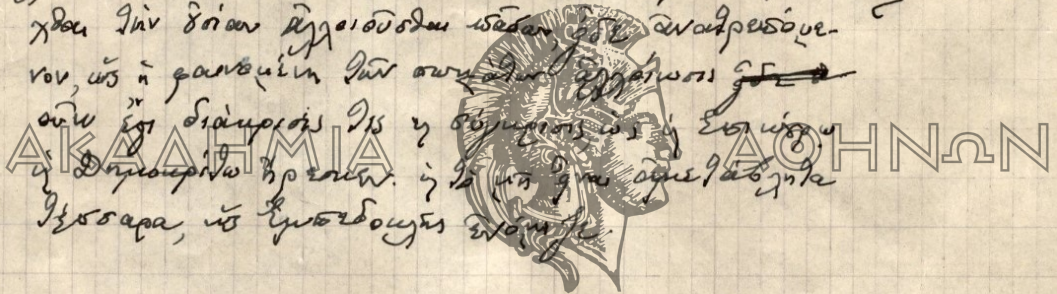 χθαι τὴν οὐσίαν ἀλλοιοῦσθαι πᾶσαν, οὐδὲ ἀνατρεπόμε-
νον, ὡς ἡ φαινομένη τῶν σωμάτων ἀλλοίωσις
οὐκ ἔστι διάκρισίς τις ἢ σύγκρισις, ὡς Ἐπικούρῳ
ἢ Δημοκρίτῳ ἤρεσκεν. ἢ τὸ μὴ εἶναι ἀμετάβλητα
τέσσαρα, ὡς Ἐμπεδοκλῆς ἐνόμιζε.
ΑΚΑΔΗΜΙΑ ΑΘΗΝΩΝ